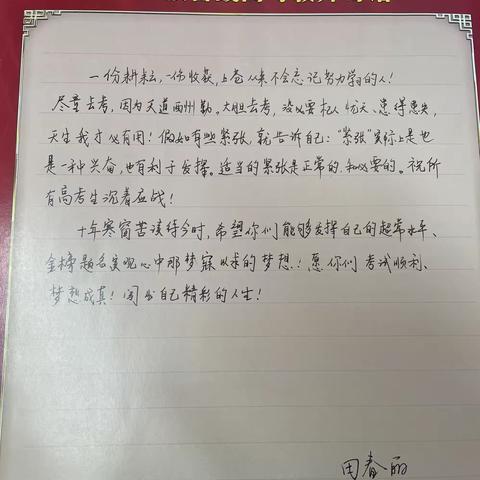 一份耕耘,一份收获,上苍从来不会忘记努力学习的人!
尽量去考,因为天道酬勤。大胆去考,没必要杞人忧天、患得患失,
天生我才必有用!假如有些紧张,就告诉自己:“紧张”实际上是也
是一种兴奋,也有利于发挥。适当的紧张是正常的,和必要的。祝所
有高考生沉着应战!
十年寒窗苦读待今时,希望你们能够发挥自己的超常水平、
金榜题名实现心中那梦寐以求的梦想!愿你们考试顺利、
梦想成真!闯出自己精彩的人生!
田春丽